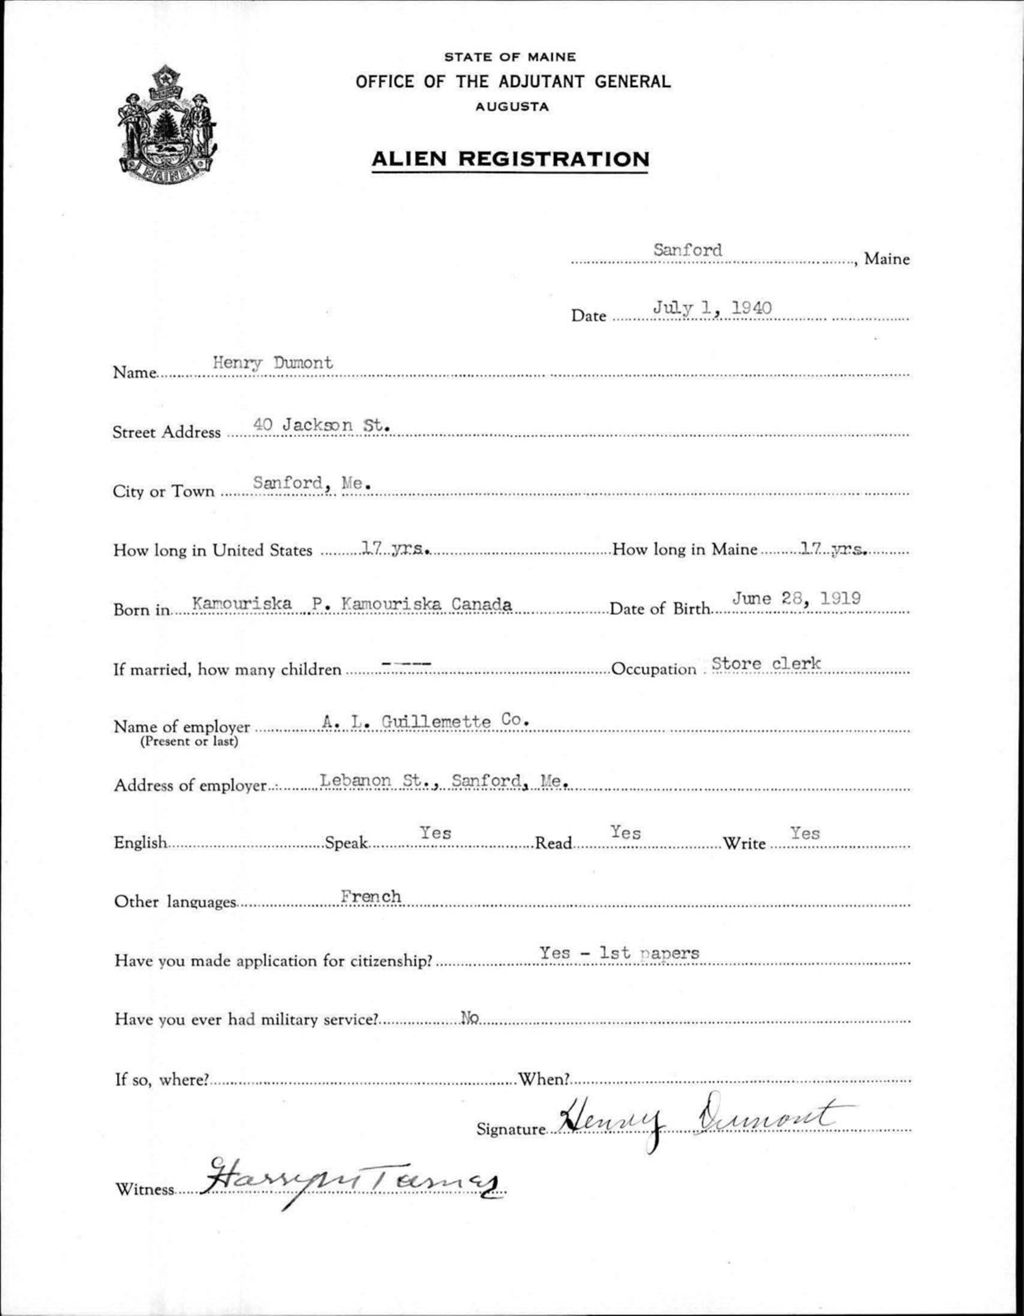 STATE OF MAINE
OFFICE OF THE ADJUTANT GENERAL
AUGUSTA
ALIEN REGISTRATION
MAINE
Sanford, Maine
Date July 1, 1940
Name Henry Dumont
Street Address 40 Jackson St.
City or Town Sanford, Me.
How long in United States 17 yrs. How long in Maine 17 yrs.
Born in Kamouriska P. Kamouriska Canada Date of Birth June 28, 1919
If married, how many children ----- Occupation Store clerk
Name of employer A. L. Guillemette Co.
(Present or last)
Address of employer Lebanon St., Sanford, Me.
English Speak Yes Read Yes Write Yes
Other languages French
Have you made application for citizenship? Yes - 1st papers
Have you ever had military service? No
If so, where? When?
Signature Henry Dumont
Witness